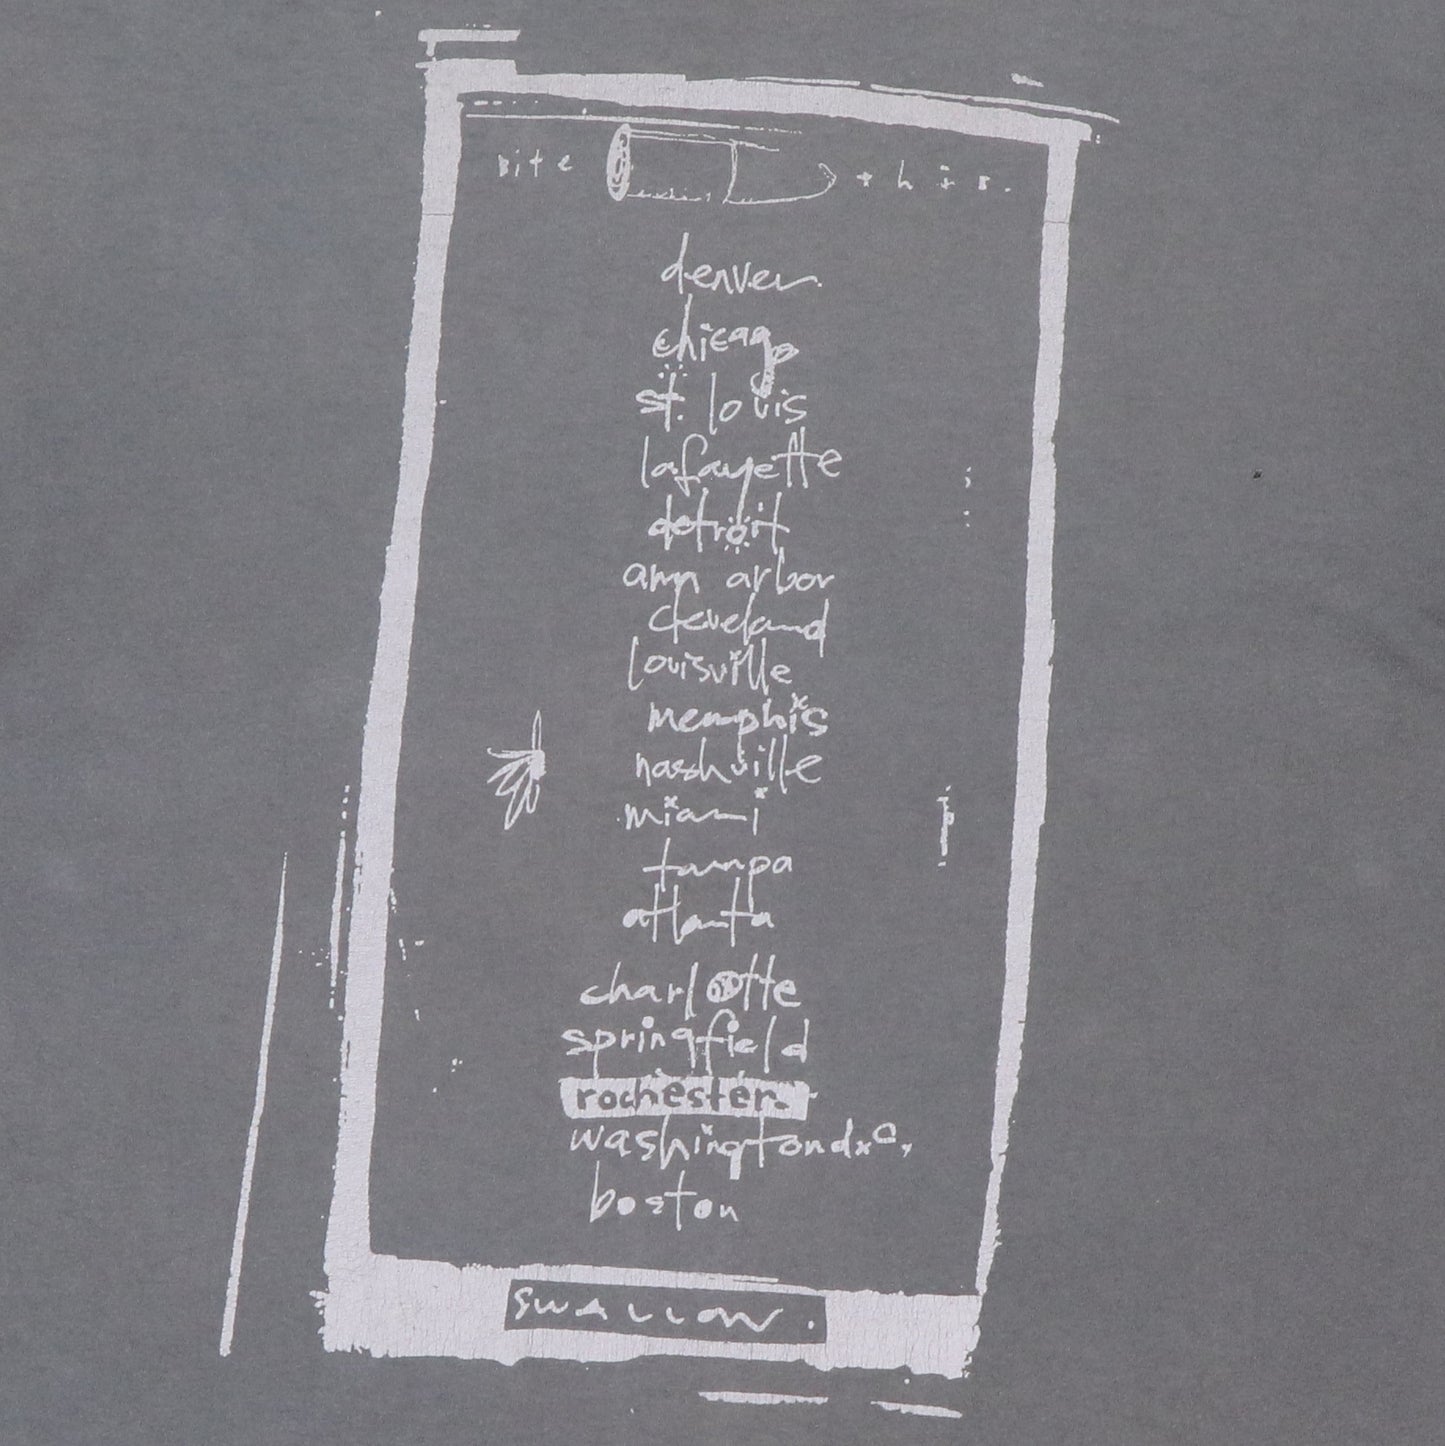 bite this.
denver
chicago
st. louis
lafayette
detroit
ann arbor
cleveland
louisville
memphis
nashville
miami
tampa
atlanta
charlotte
springfield
rochester.
washington d.c.
boston
SWALLOW.